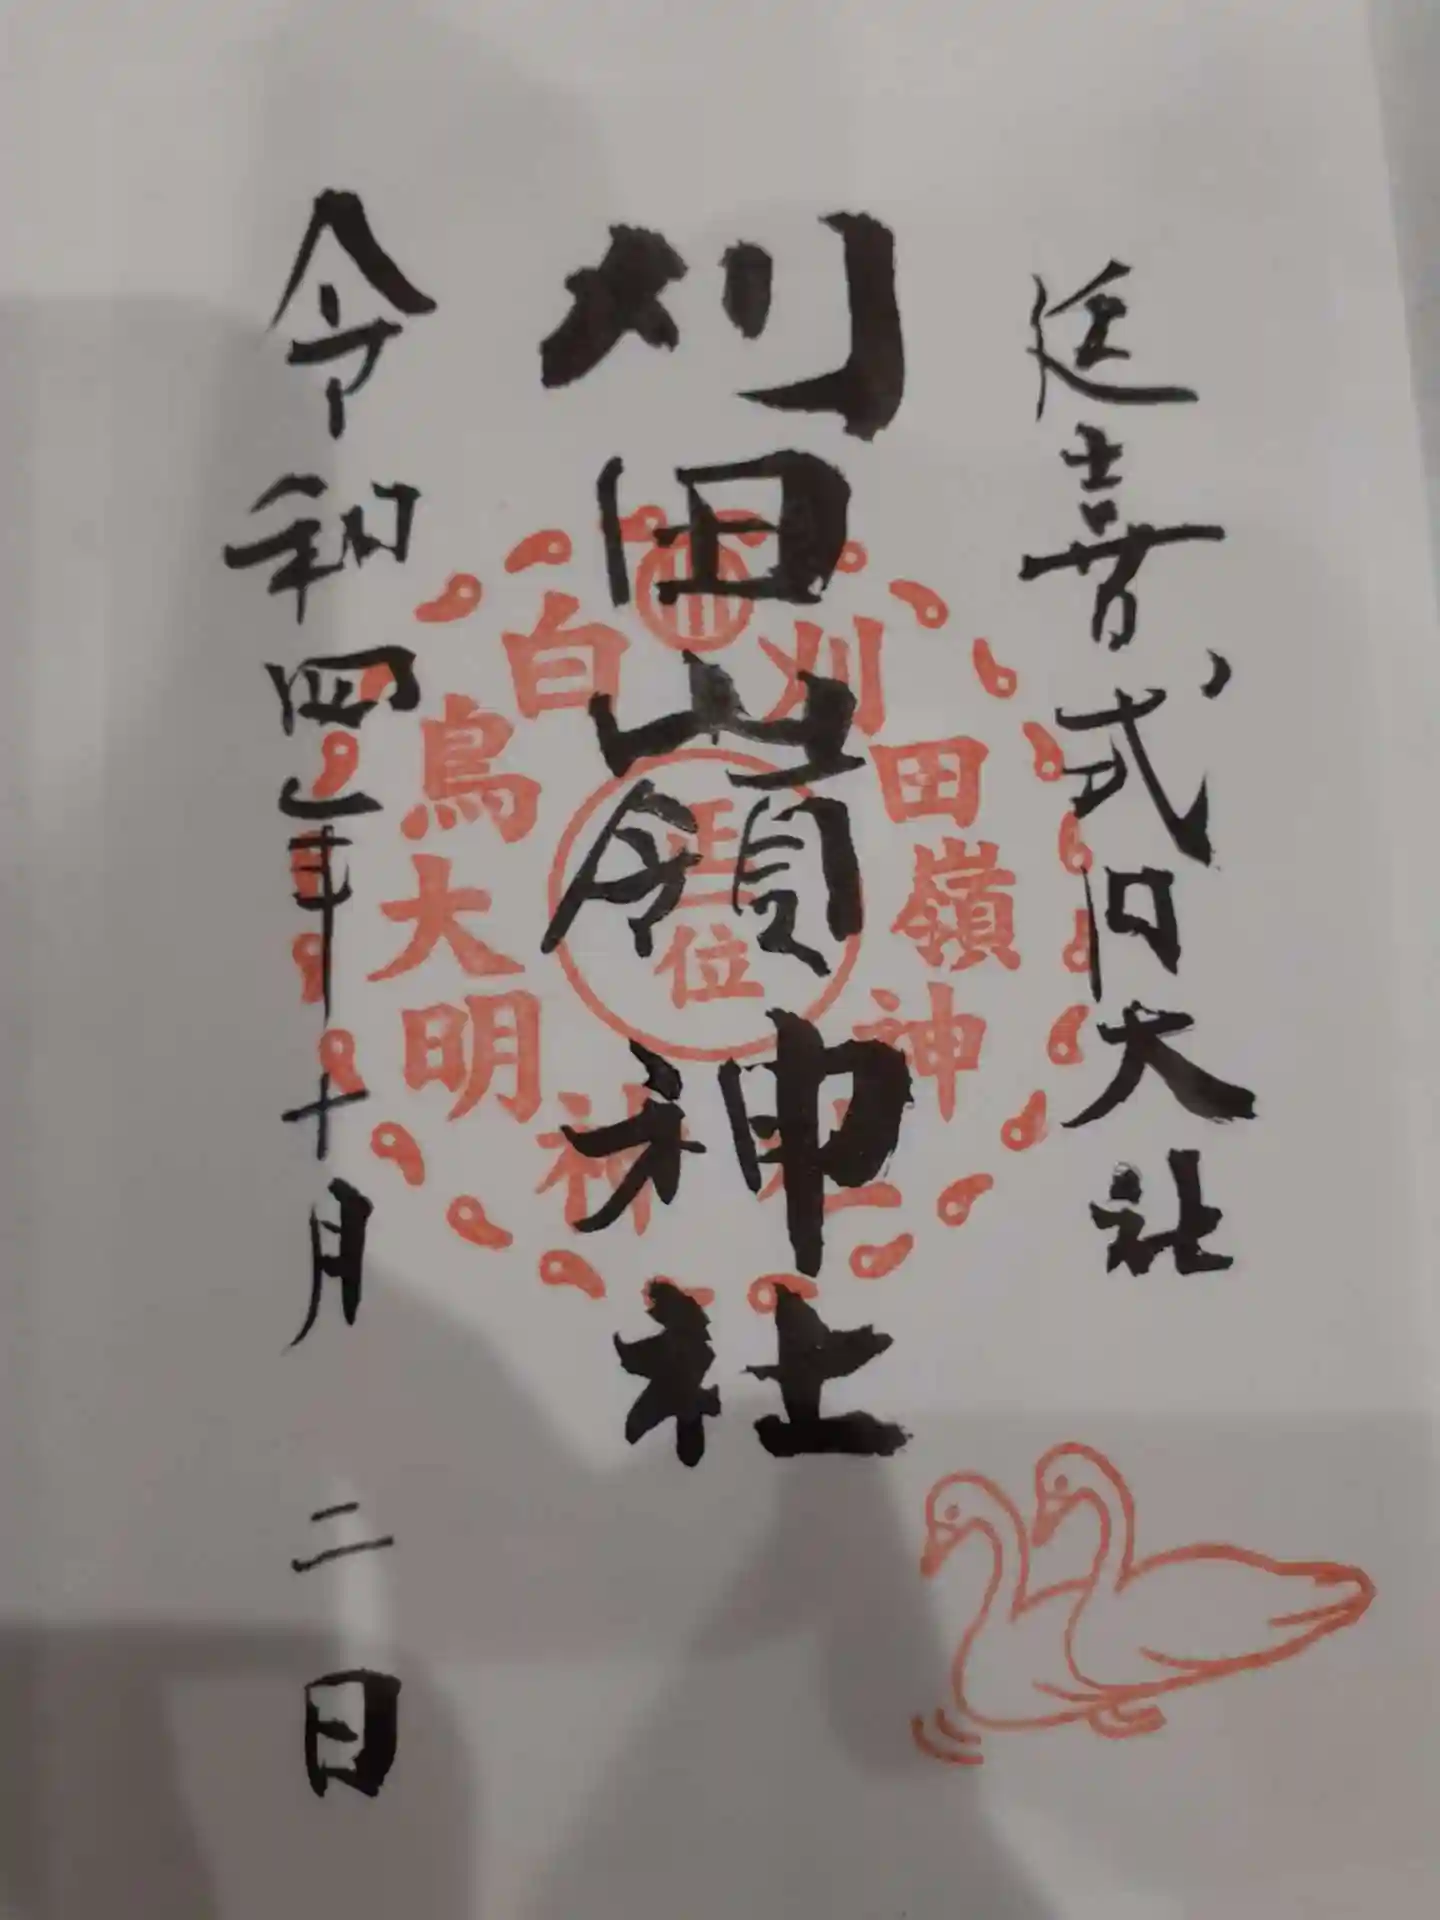 延喜式内大社
刈田嶺神社
令和四年十月二日
刈田嶺神社
白鳥大明神
正一位